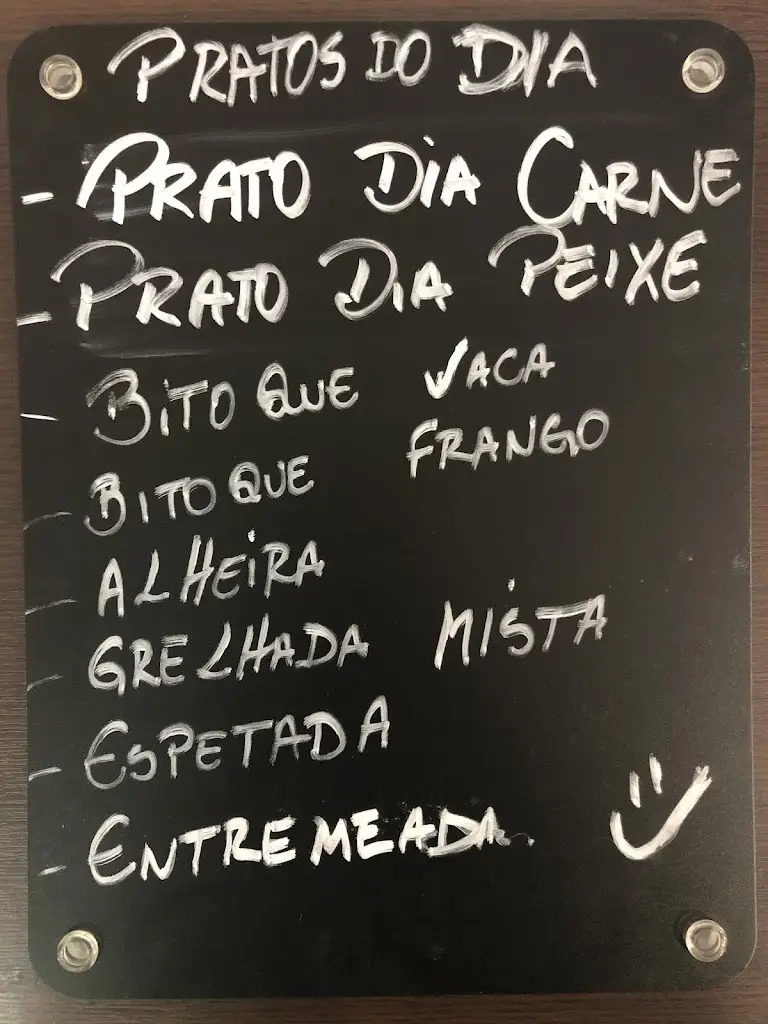 PRATOS DO DIA
- PRATO DiA CARNE
- PRATO DiA PEIXE
- BiTOQUE VACA
- BITOQUE FRANGO
- ALHEiRA
- GRELHADA MiSTA
- ESPETADA
- ENTREMEADA.